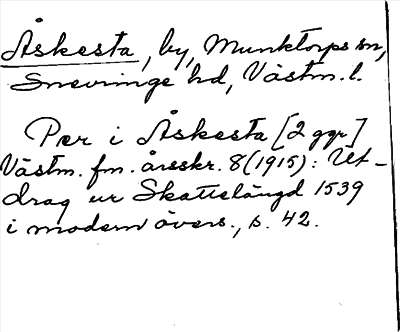 Åskesta, by, Munktorps sn,
Snevringe hd, Västm. l.
Per i Åskesta [2 ggr]
Västm. fm. årsskr. 8 (1915): Ut-
drag ur Skattelängd 1539
i modern övers., s. 42.